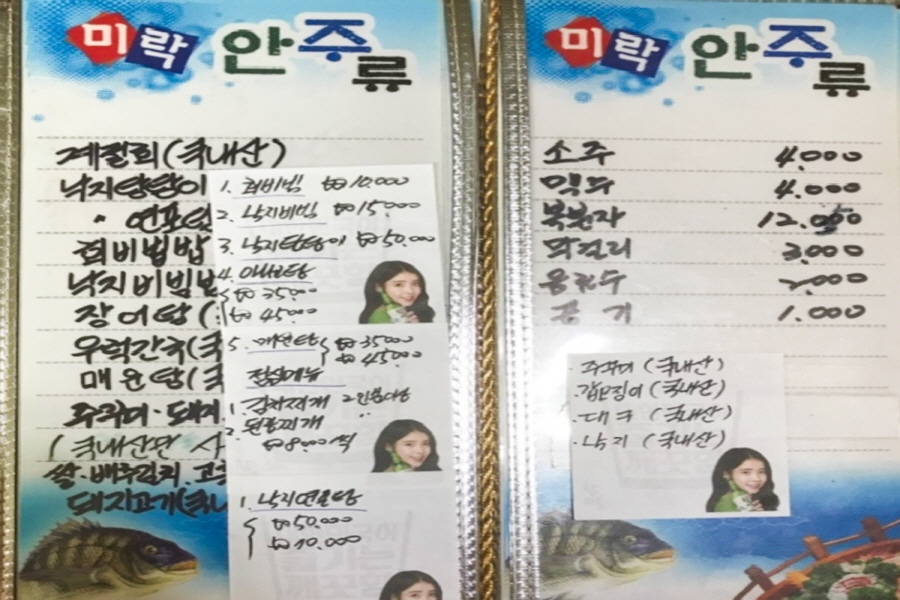 미락 안주류
계절회(국내산)
낙지탕탕이
" 연포탕
회비빔밥
낙지비빔
장어탕(
우럭간국(국
매운탕(국
주꾸미·돼지
(국내산만 사
쌀·배추김치.고춧
돼지고기(국
1. 회비빔 ₩10.000
2. 낙지비빔 ₩15.000
3. 낙지탕탕이 ₩50.000
4.
₩35.000
₩45.000
5. 매운탕 ₩35000
₩45000
점심메뉴
1. 김치찌개 2인분이상
2. 된장찌개 "
₩8.000/씩
1. 낙지연포탕
₩50.000
₩10.000
미락 안주류
소주 4.000
맥주 4.000
복분자 12.000
막걸리 3.000
음료수 2.000
공기 1.000
· 주꾸미 (국내산)
· 갑오징어 (국내산)
· 대구 (국내산)
· 낙지 (국내산)